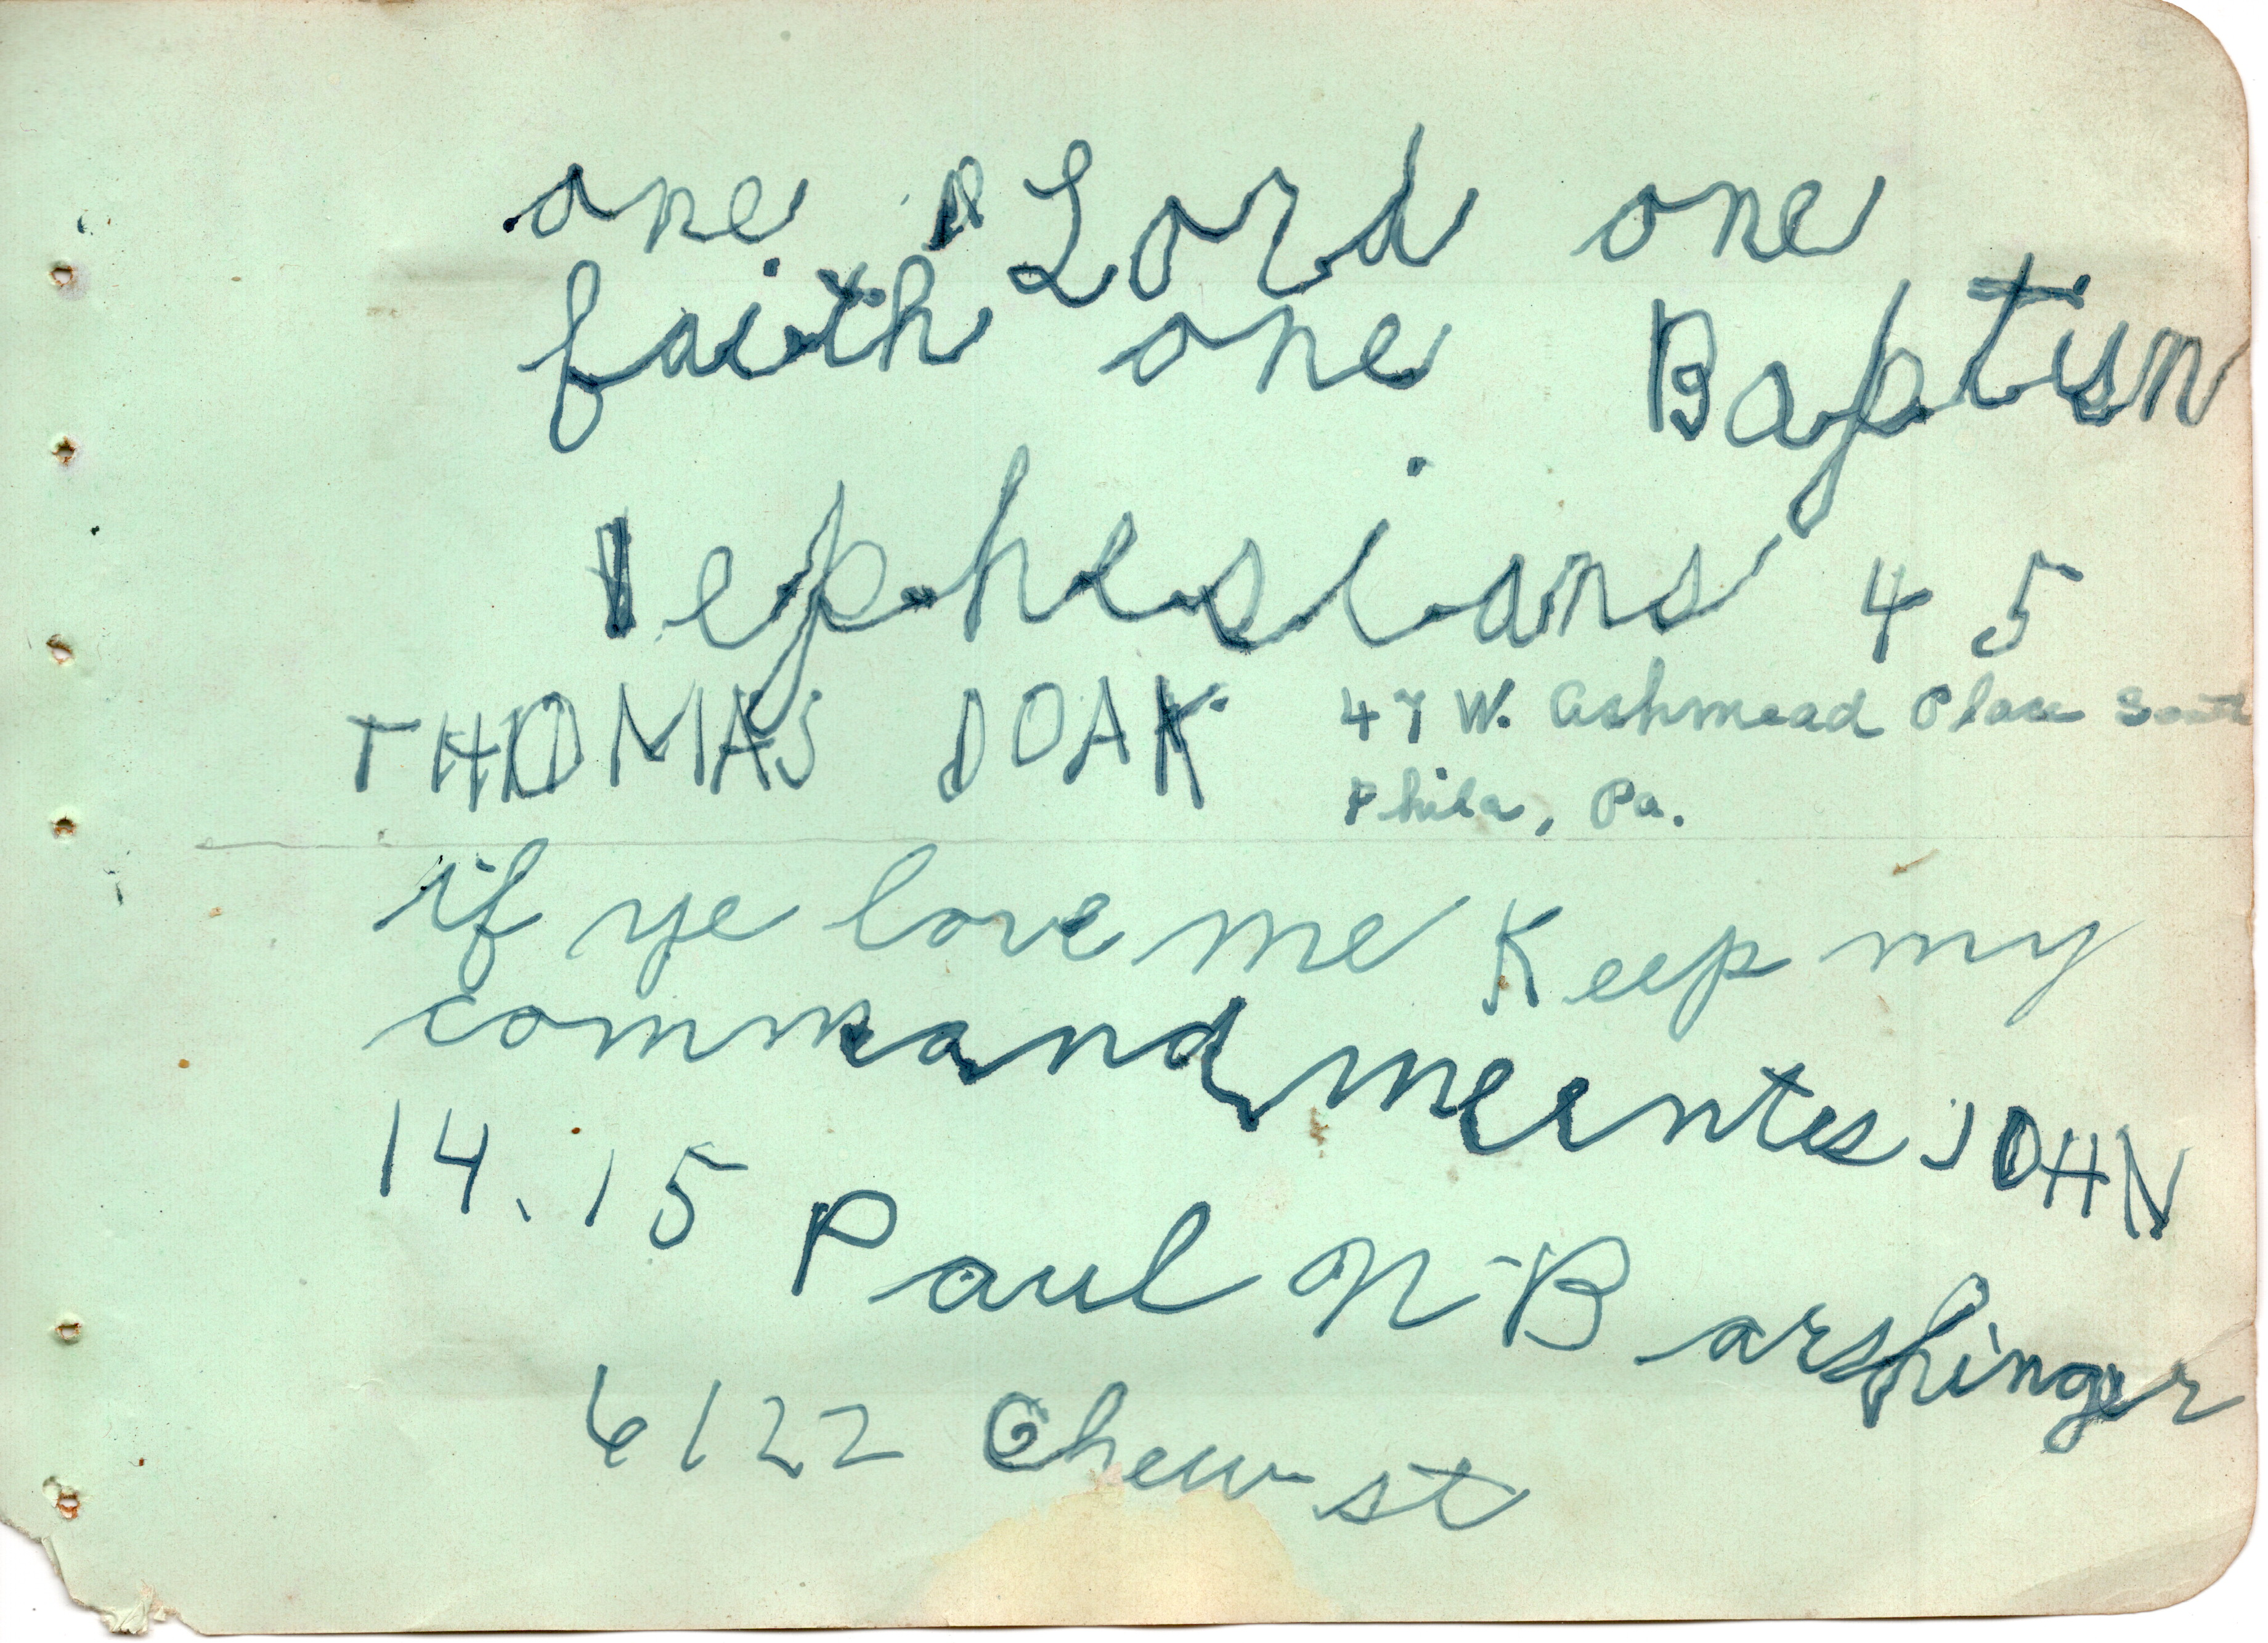 one Lord one
faith one Baptism
ephesians 4 5
THOMAS DOAK 47 W. Ashmead Place South
Phila, Pa.
if ye love me Keep my
commandmeents JOHN
14.15 Paul N Barshinger
6122 Chew st